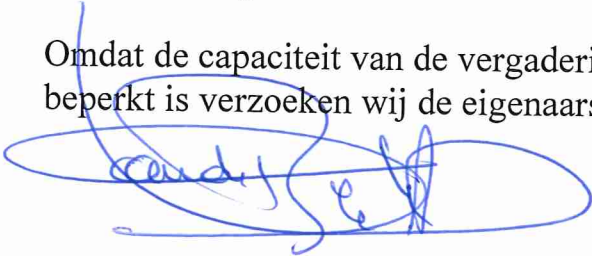 Omdat de capaciteit van de vergaderi
beperkt is verzoeken wij de eigenaars